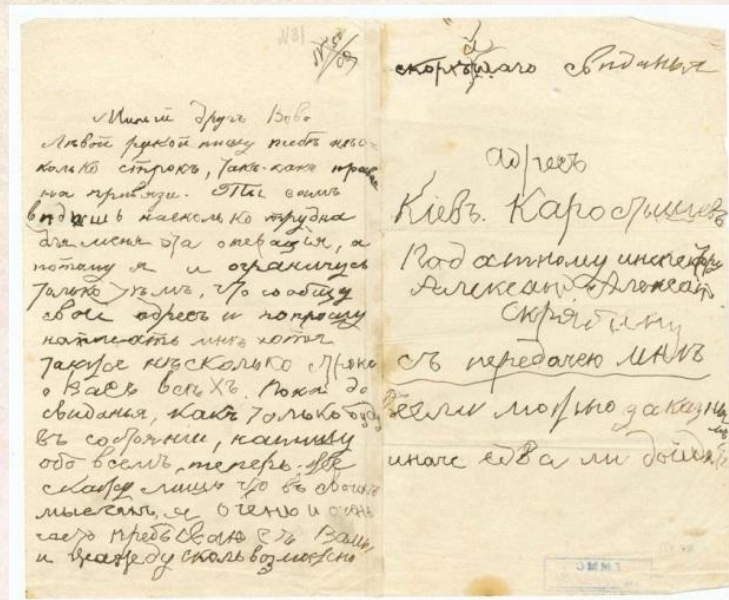 № 50/09
Милый другъ Вова
Лѣвой рукой пишу тебѣ нѣс-
колько строкъ, такъ-какъ правая
на привязи. Ты самъ
видишь насколько трудна
для меня эта операція, а
потому я и ограничусь
только тѣмъ, что сообщу
свой адресъ и попрошу
написать мнѣ хотя
такое нѣсколько строкъ
о Васъ всѣхъ. Пока до
свиданья, какъ только буду
въ состояніи, напишу
обо всемъ, теперь-же
скажу лишь что въ своихъ
мысляхъ, я очень и очень
часто пребываю съ Вами
и жажду сколь возможно
скорѣйшаго свиданья
адресъ
Кіевъ. Каростышевъ
Податному инспектору
Александ. Александ.
Скрябину
съ передачею мнѣ
если можно заказнымъ
иначе едва ли дойдетъ
ГММС